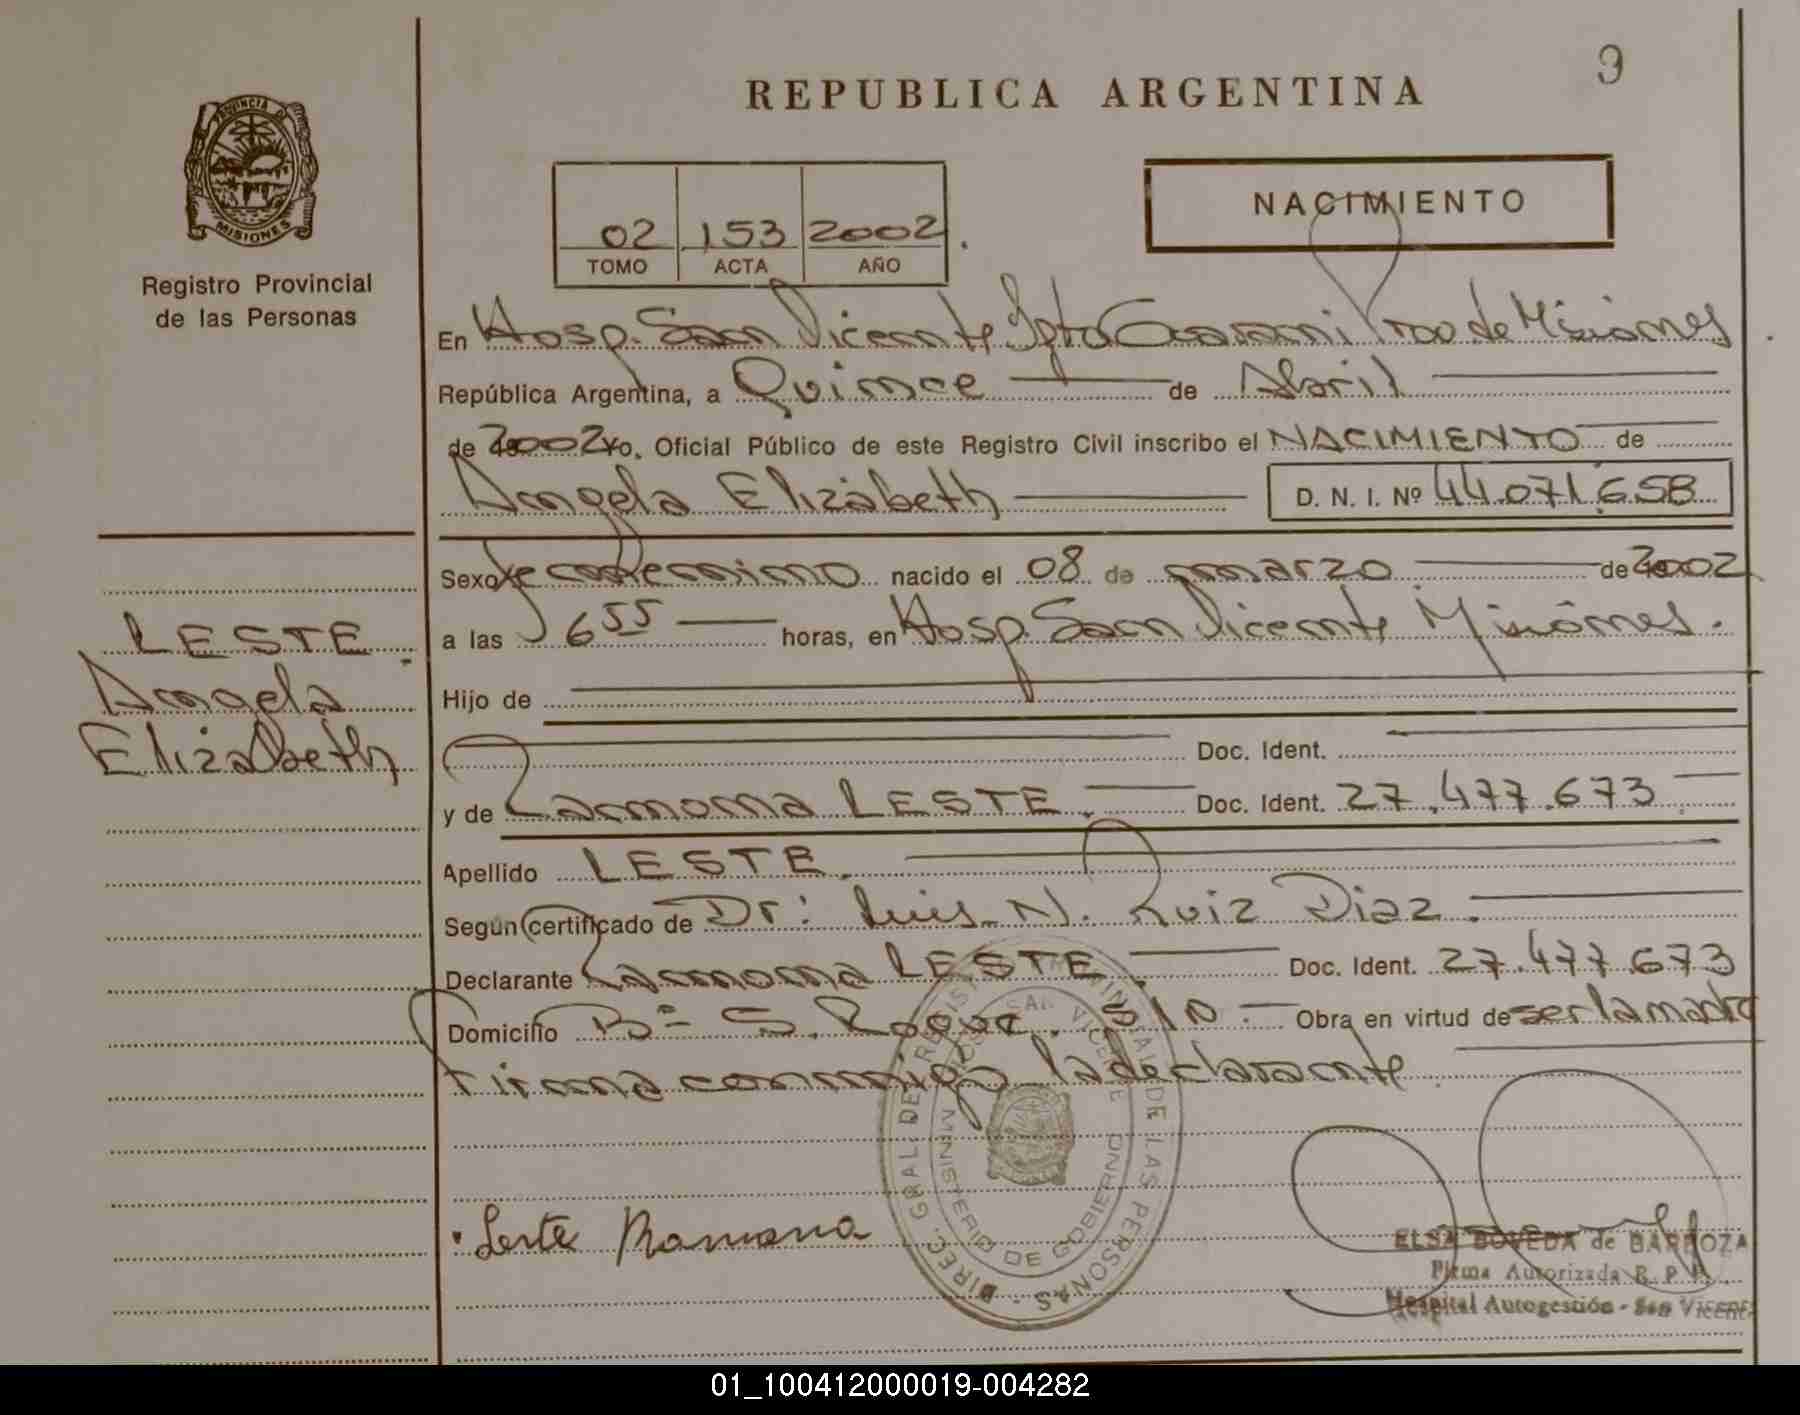 9
REPUBLICA ARGENTINA
PROVINCIA DE
MISIONES
Registro Provincial
de las Personas
NACIMIENTO
02 153 2002.
TOMO ACTA AÑO
En Hosp. San Vicente Dpto Guarani Pcia de Misiones.
República Argentina, a Quince de Abril
de 2002 Yo, Oficial Público de este Registro Civil inscribo el NACIMIENTO de
Angela Elizabeth D. N. I. Nº 44.071.658
Sexo femenino nacido el 08 de marzo de 2002
a las 6 55 horas, en Hosp. San Vicente Misiones.
LESTE
Angela
Elizabeth
Hijo de
Doc. Ident.
y de Ramona LESTE. Doc. Ident. 27.477.673
Apellido LESTE.
Según certificado de Dr: Luis N. Ruiz Diaz.
Declarante Ramona LESTE Doc. Ident. 27.477.673
Domicilio Bº S. Roque. S/N - Obra en virtud de ser la madre
firma conmigo la declarante.
DIREC. GRAL. DE REGISTRO PROVINCIAL DE LAS PERSONAS
MINISTERIO DE GOBIERNO
HOSP. SAN VICENTE
Leste Ramona
ELSA BOVEDA de BARBOZA
Firma Autorizada R. P. P.
Hospital Autogestión - San Vicente
01_100412000019-004282